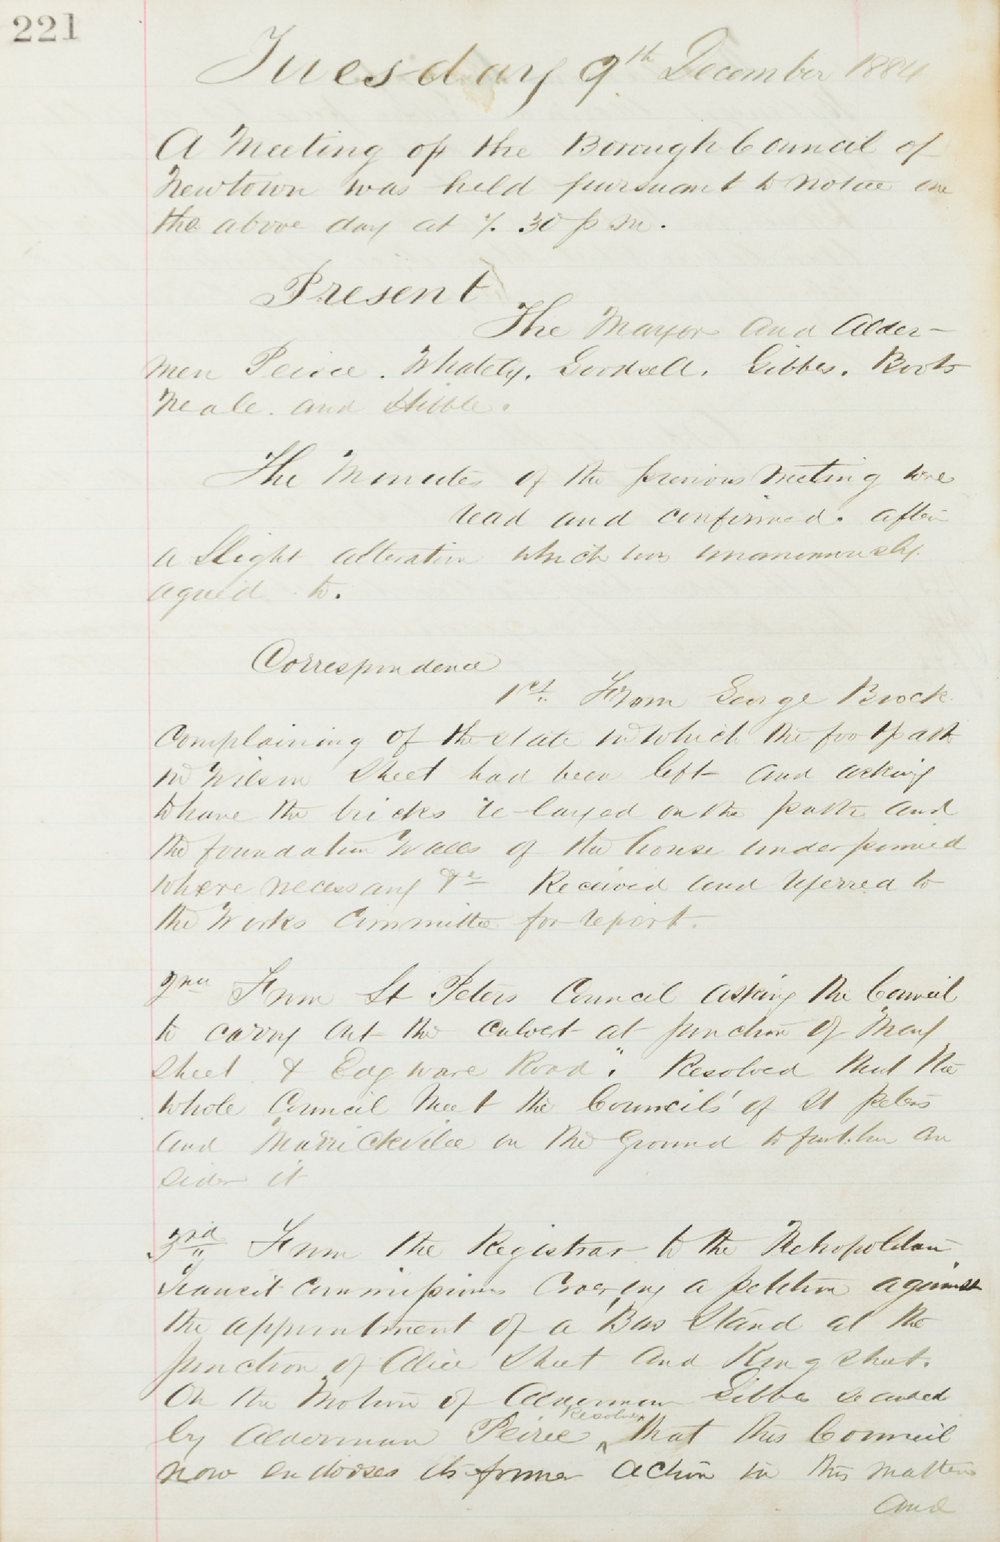 221
Tuesday 9th December 1884
A Meeting of the Borough Council of
Newtown was held pursuant to notice on
the above day at 7.30 p.m.
Present
The Mayor and Alder-
men Peirce. Whately. Goodsell. Gibbes. Roots
Neale. and Hibble.
The Minutes of the previous Meeting were
read and confirmed. after
a Slight alteration which was unanimously
agreed to.
Correspondence
1st. From George Brock
Complaining of the state in which the footpath
in Wilson Street had been left and asking
to have the bricks re-layed on the path and
the foundation Walls of the house underpinned
where necessary &c Received and referred to
the Works Committee for report.
2nd From St Peters Council asking the Council
to carry out the culvert at junction of May
Street & Edgware Road". Resolved that the
whole Council Meet the Councils' of St Peters
and Marrickville on the Ground to further con
sider it
3rd From the Registrar to the Metropolitan
Transit Commissioners Covering a petition against
the appointment of a Bus Stand at the
junction of Alice Street and King Street.
On the Motion of Alderman Gibbes seconded
by Alderman Peirce Resolved that this Council
now endorses its former action in this matter
and